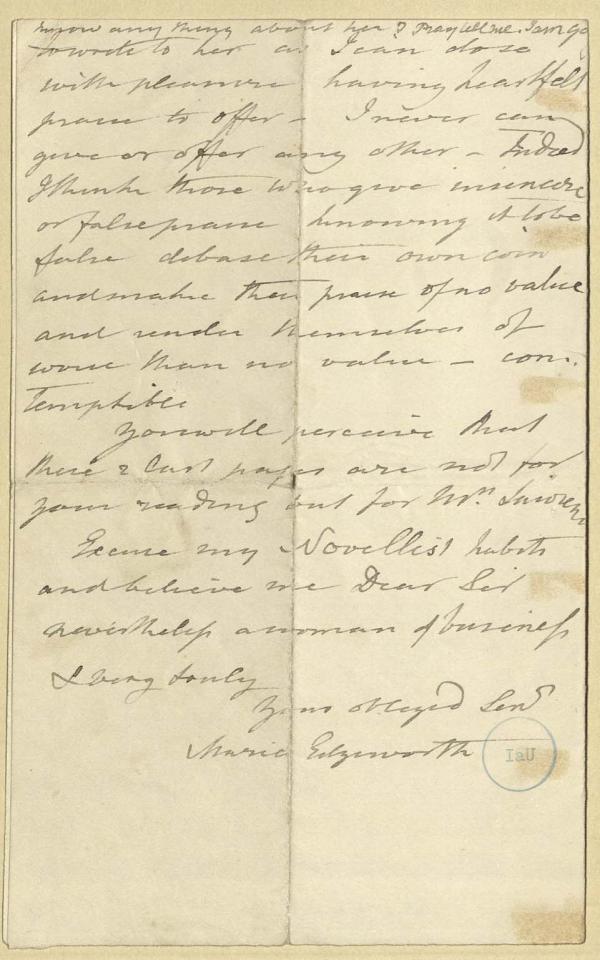 know any thing about her? Pray tell me. I am go
to write to her as I can do so
with pleasure having heartfelt
praise to offer – I never can
give or offer any other – Indeed
I think those who give insincere
or false praise knowing it to be
false debase their own coin
and make their praise of no value
and render themselves of
worse than no value – con-
temptible
You will perceive that
these 2 last pages are not for
your reading but for Mrs.
Excuse my Novellist habits
and believe me Dear Sir
nevertheless a woman of business
& very truly
Your obliged Servt
Maria Edgeworth
IaU